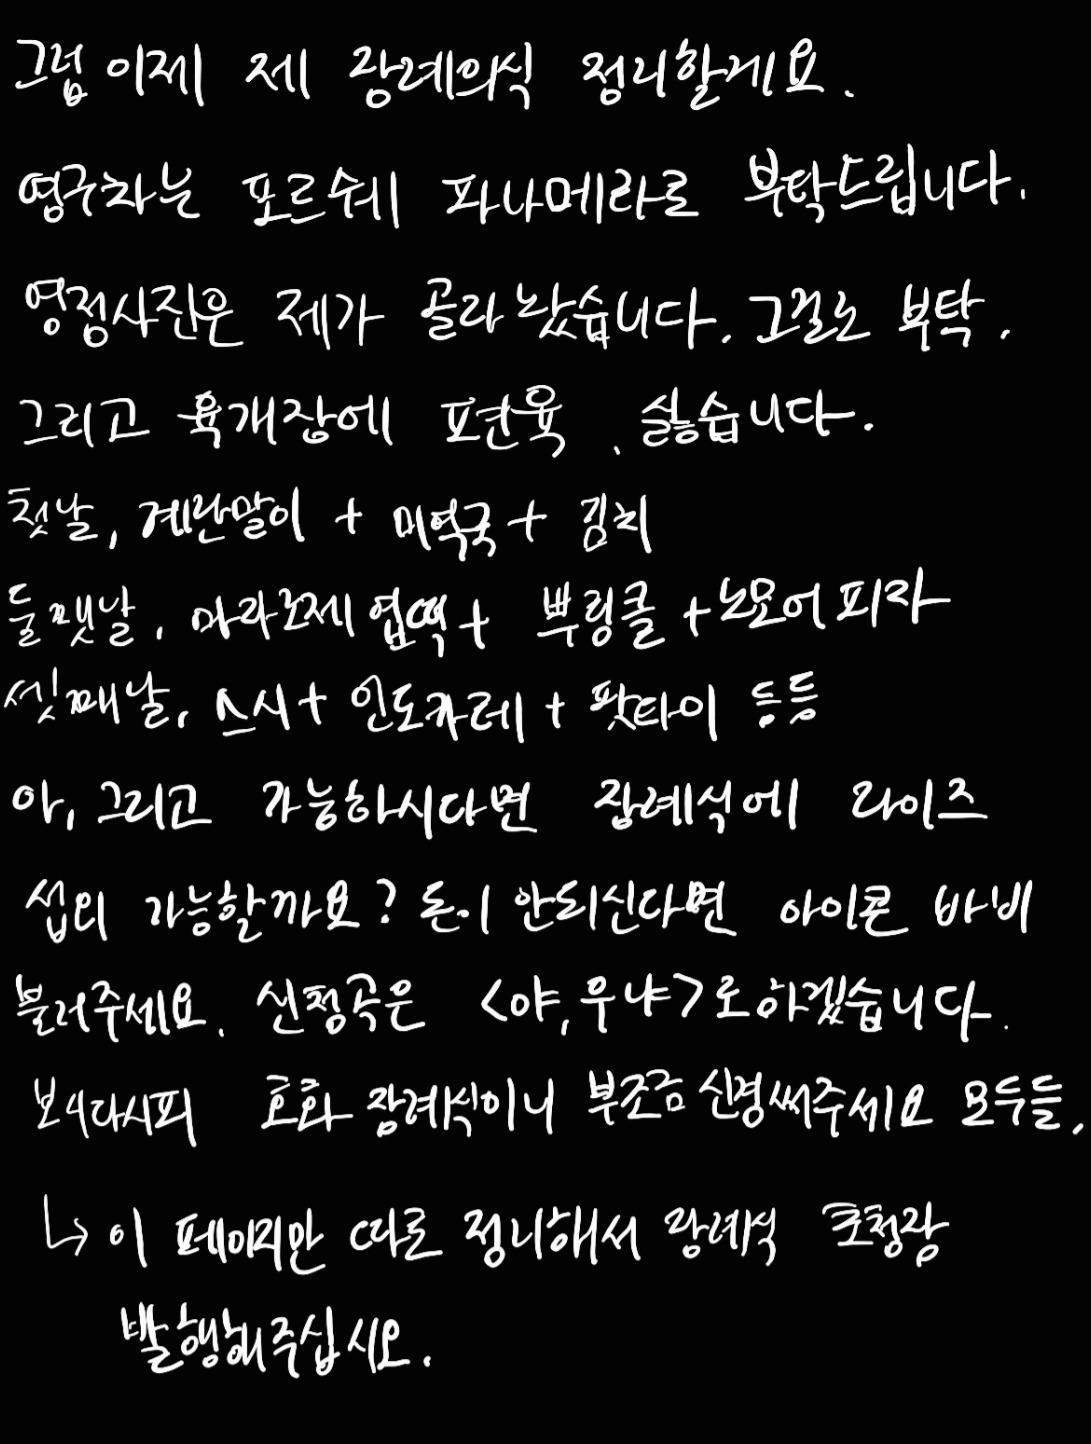 그럼 이제 제 장례의식 정리할게요.
영구차는 포르쉐 파나메라로 부탁드립니다.
영정사진은 제가 골라놨습니다. 그걸로 부탁.
그리고 육개장에 편육, 싫습니다.
첫날, 계란말이 + 미역국 + 김치
둘쨋날, 마라로제 엽떡 + 뿌링클 + 노모어피자
셋째날, 스시 + 인도카레 + 팟타이 등등
아, 그리고 가능하시다면 장례식에 라이즈
섭외 가능할까요? 돈이 안되신다면 아이콘 바비
불러주세요. 신청곡은 <야, 우냐>로 하겠습니다.
보시다시피 호화 장례식이니 부조금 신경써주세요 모두들,
↳ 이 페이지만 따로 정리해서 장례식 초청장
발행해주십시오.